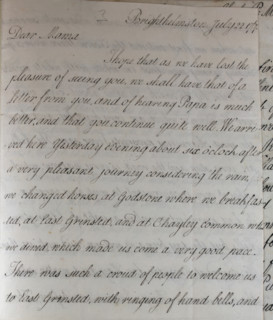 Brighthelmston July 22
Dear Mama
I hope that as we have lost the
pleasure of seeing you, we shall have that of a
letter from you, and of hearing Papa is much
better, and that you continue quite well. We arri
ved here Yesterday evening about six o'clock after
a very pleasant journey considering the rain.
we changed horses at Godstone where we breakfas
ted, at East Grinsted, and at Chayley common, wh
we dined, which made us come a very good pace.
There was such a croud of people to welcome us
to East Grinsted, with ringing of hand bells, and